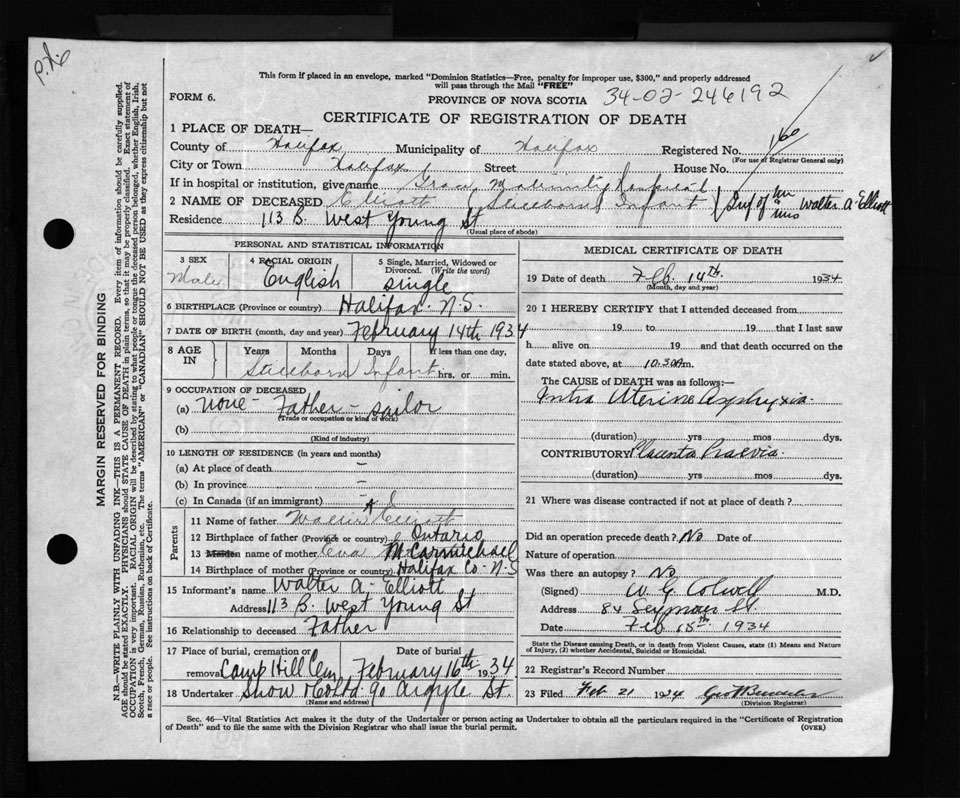 This form if placed in an envelope, marked "Dominion Statistics—Free, penalty for improper use, $300," and properly addressed
will pass through the Mail "FREE"
FORM 6.
PROVINCE OF NOVA SCOTIA
34-02-246192
CERTIFICATE OF REGISTRATION OF DEATH
1 PLACE OF DEATH—
County of Halifax Municipality of Halifax Registered No. 160
(For use of Registrar General only)
City or Town Halifax Street House No.
If in hospital or institution, give name Grace Maternity Hospital
2 NAME OF DECEASED Elliott (Stillborn Infant) of Mr & Mrs Walter A. Elliott
Residence 113 B. West Young St
(Usual place of abode)
PERSONAL AND STATISTICAL INFORMATION
3 SEX Male
4 RACIAL ORIGIN English
5 Single, Married, Widowed or Divorced. (Write the word) single
6 BIRTHPLACE (Province or country) Halifax N.S.
7 DATE OF BIRTH (month, day and year) February 14th 1934
8 AGE IN Years Months Days If less than one day, hrs. or min.
Stillborn Infant
9 OCCUPATION OF DECEASED
(a) None - Father - sailor
(Trade or occupation or kind of work)
(b)
(Kind of industry)
10 LENGTH OF RESIDENCE (in years and months)
(a) At place of death –
(b) In province –
(c) In Canada (if an immigrant) –
Parents
11 Name of father Elliott
12 Birthplace of father (Province or country) Ontario
13 Maiden name of mother Eva McCarmichael
14 Birthplace of mother (Province or country) Halifax Co - N.S
15 Informant's name Walter A - Elliott
Address 113 B. West Young St
16 Relationship to deceased Father
17 Place of burial, cremation or removal Camp Hill Cem Date of burial February 16th 1934
18 Undertaker Snow & Co Ltd 90 Argyle St.
(Name and address)
MEDICAL CERTIFICATE OF DEATH
19 Date of death Feb. 14th. 1934
(Month, day and year)
20 I HEREBY CERTIFY that I attended deceased from
19 to 19 that I last saw
h alive on 19 and that death occurred on the
date stated above, at 10.30 A m.
The CAUSE of DEATH was as follows:—
Intra Uterine Asphyxia.
(duration) yrs mos dys.
CONTRIBUTORY Placenta Praevia.
(duration) yrs mos dys.
21 Where was disease contracted if not at place of death?
Did an operation precede death? No Date of
Nature of operation
Was there an autopsy? No
(Signed) W. G. Colwell M.D.
Address 84 Seymour St.
Date Feb 15th 1934
State the Disease causing Death, or in death from Violent Causes, state (1) Means and Nature of Injury, (2) whether Accidental, Suicidal or Homicidal.
22 Registrar's Record Number
23 Filed Feb 21 1934
(Division Registrar)
Sec. 46—Vital Statistics Act makes it the duty of the Undertaker or person acting as Undertaker to obtain all the particulars required in the "Certificate of Registration
of Death" and to file the same with the Division Registrar who shall issue the burial permit.
(OVER)
MARGIN RESERVED FOR BINDING
N.B.—WRITE PLAINLY WITH UNFADING INK—THIS IS A PERMANENT RECORD. Every item of information should be carefully supplied.
AGE should be stated EXACTLY. PHYSICIANS should STATE CAUSE OF DEATH in plain terms, so that it may be properly classified. Exact statement of
OCCUPATION is very important. RACIAL ORIGIN will be described by stating to what people or tongue the deceased person belonged, whether English, Irish,
Scotch, French, German, Russian, Ruthenian, etc. The terms "AMERICAN" or "CANADIAN" SHOULD NOT BE USED as they express citizenship but not
a race or people. See instructions on back of Certificate.